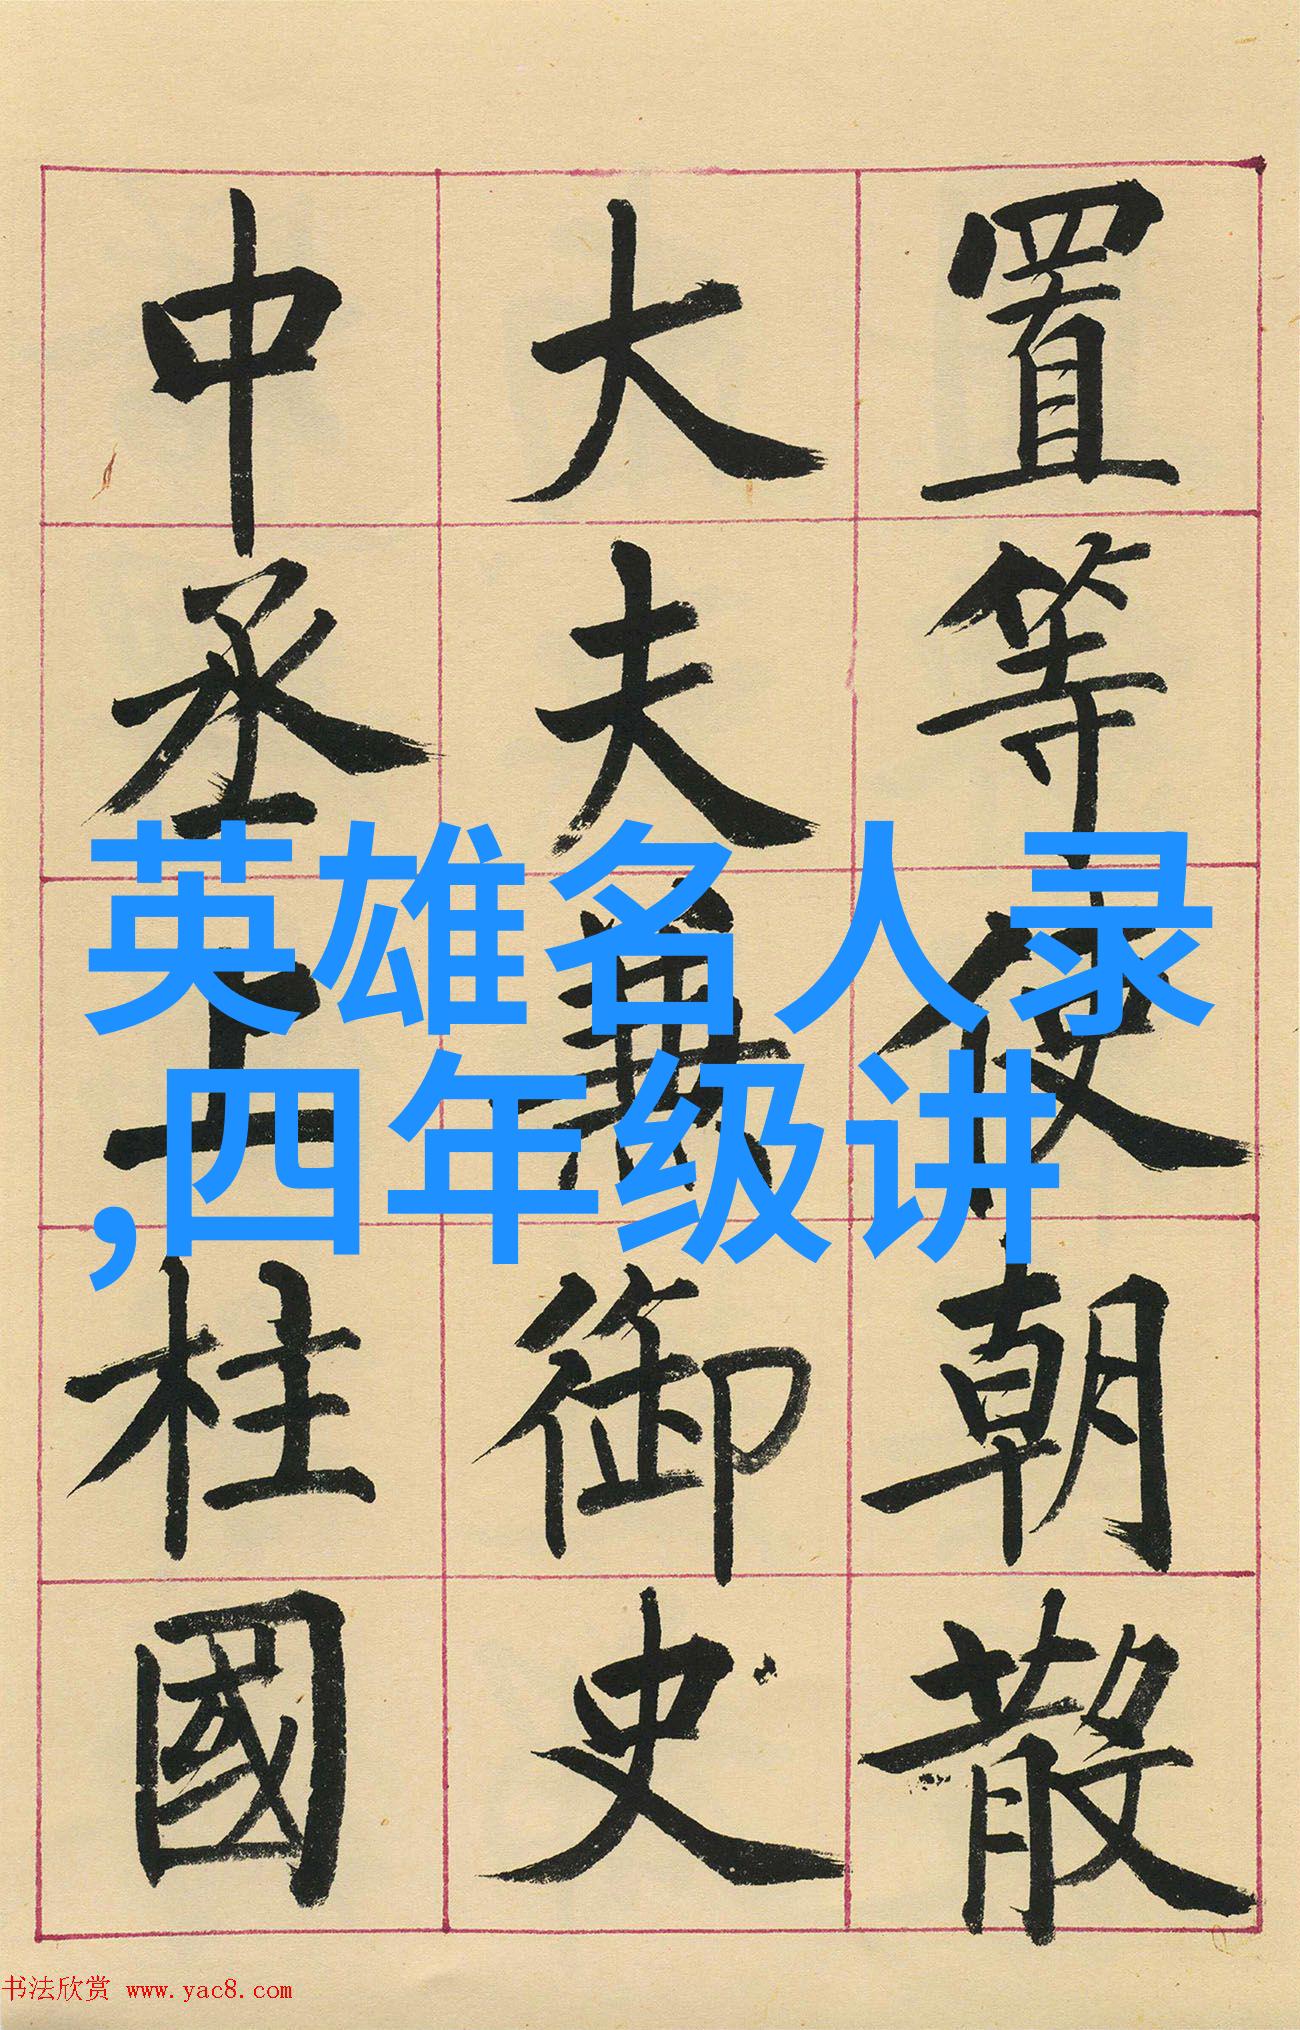 置等使朝散
大夫兼御史
中丞上柱國
英雄名人录
,四年级讲
书法欣赏 www.yac8.com